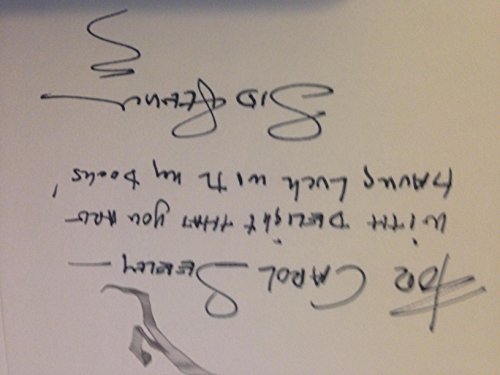 FOR CAROL SEELEY —
WITH DELIGHT THAT YOU ARE
HAVING LUCK WITH MY BOOKS!
SID